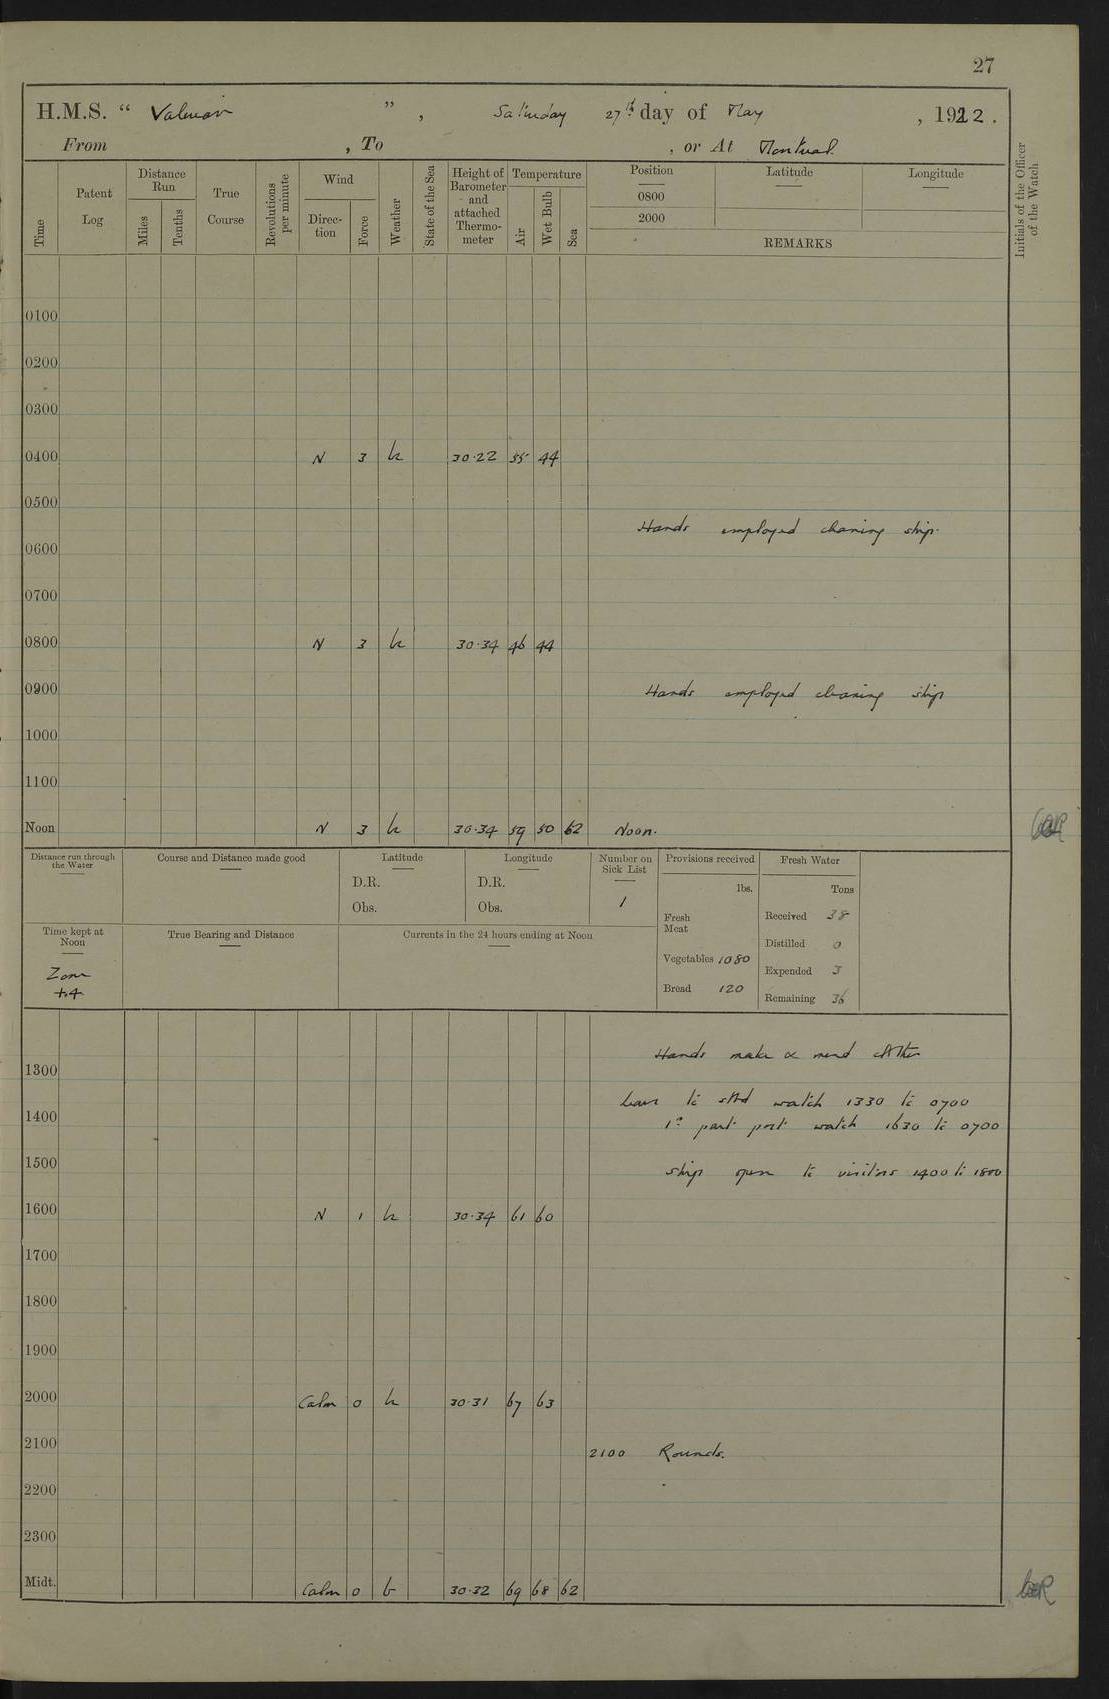 27
H.M.S. “ Valerian ” , Saturday 27th day of May , 1922 .
From , To , or At Montreal.
Time
Patent Log
Distance Run
Miles
Tenths
True Course
Revolutions per minute
Wind
Direc-tion
Force
Weather
State of the Sea
Height of Barometer and attached Thermo-meter
Temperature
Air
Wet Bulb
Sea
Position Latitude Longitude
0800
2000
REMARKS
Initials of the Officer of the Watch
0100
0200
0300
0400 N 3 30·22 55 44
0500
Hands employed cleaning ship.
0600
0700
0800 N 3 30·34 46 44
0900 Hands employed cleaning ship
1000
1100
Noon N 3 30·34 59 50 62 Noon.
Distance run through the Water
Course and Distance made good
Latitude
D.R.
Obs.
Longitude
D.R.
Obs.
Number on Sick List
1
Provisions received
lbs.
Fresh Meat
Vegetables 1080
Bread 120
Fresh Water
Tons
Received 38
Distilled 0
Expended 3
Remaining 36
Time kept at Noon
Zone
+4
True Bearing and Distance
Currents in the 24 hours ending at Noon
Hands make & mend clothes
1300
Leave to stbd watch 1330 to 0700
1400
1st part port watch 1630 to 0700
1500
Ship open to visitors 1400 to 1800
1600 N 1 30·34 61 60
1700
1800
1900
2000 Calm 0 30·31 67 63
2100 2100 Rounds.
2200
2300
Midt. Calm 0 b 30·32 69 68 62